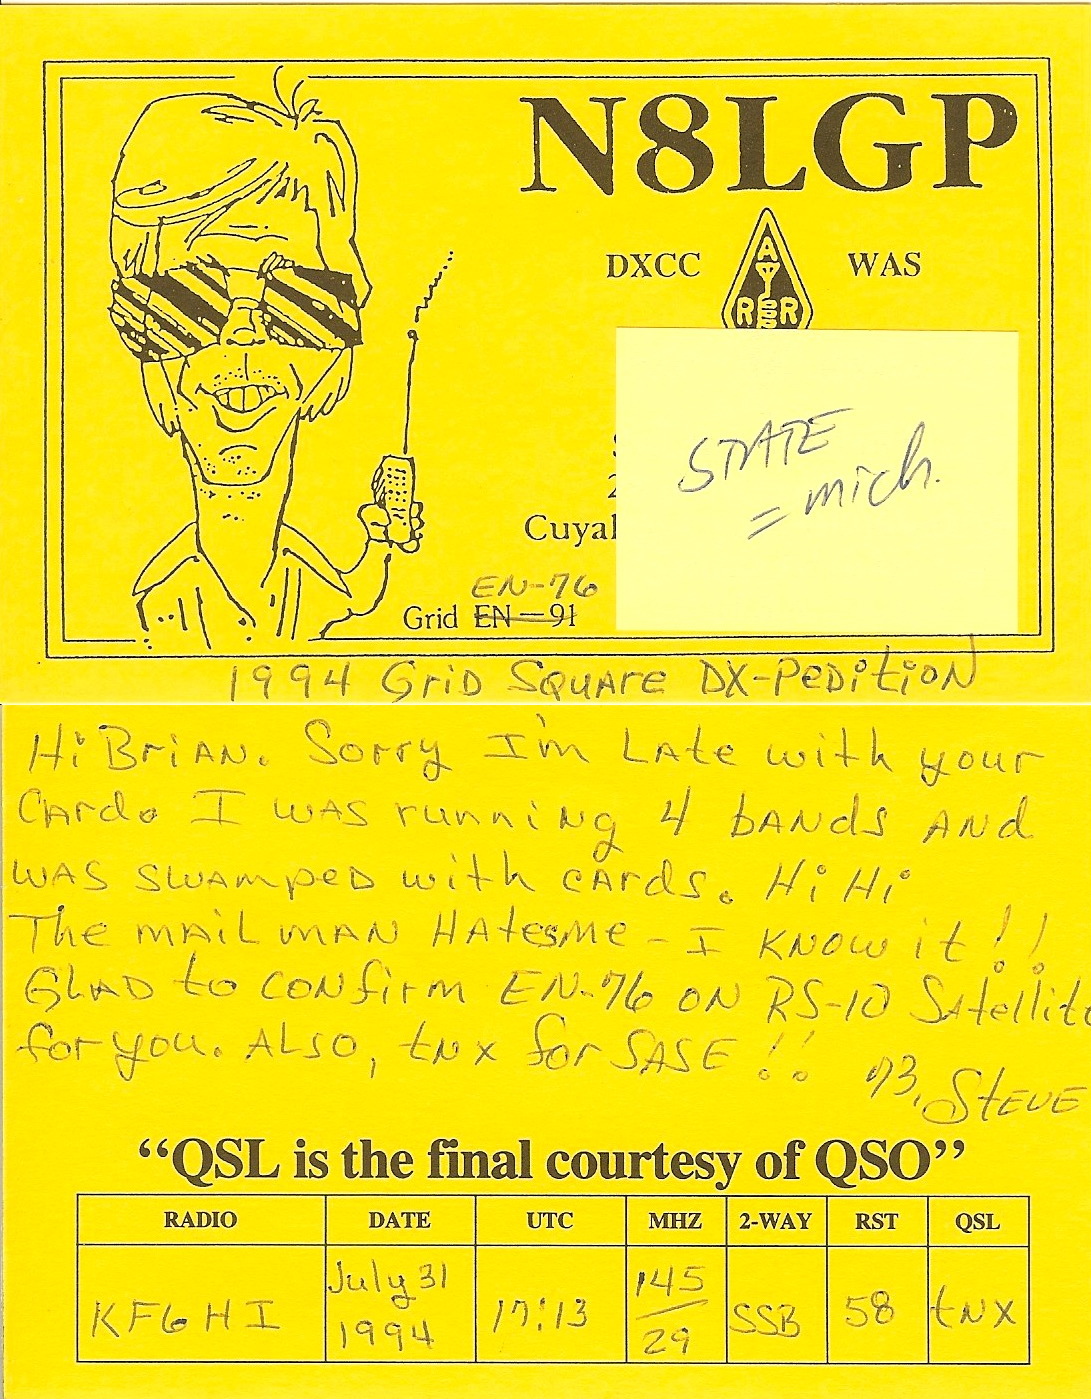 N8LGP
DXCC WAS
A
R R
STATE
= mich.
Cuyal
EN-76
Grid EN—91
1994 GriD SQUARE DX-PEDitiON
Hi BriAN. Sorry I'm LAte with your
CArd. I WAS running 4 bANds AND
WAS SWAmpeD with CArds. Hi Hi
The mAiLmAN HAtesMe - I KNOW it!!
GLAD to CONfirm EN-76 ON RS-10 SAtellite
for you. ALSO, tNX for SASE!! 73, STEVE
“QSL is the final courtesy of QSO”
RADIO DATE UTC MHZ 2-WAY RST QSL
KF6HI July 31 1994 17:13 145/29 SSB 58 tNX